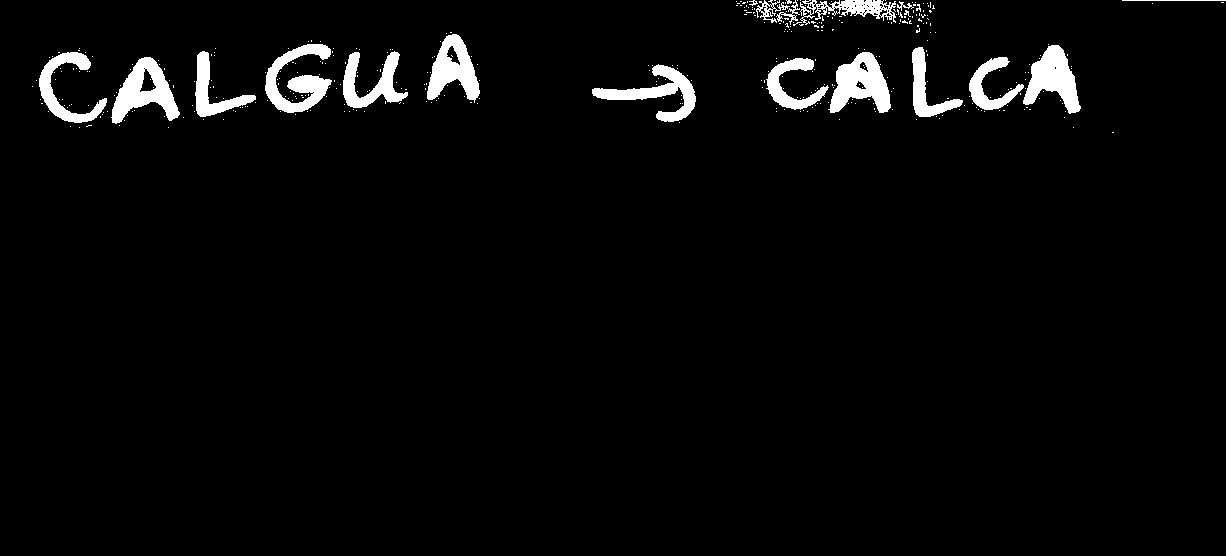 CALGUA → CALCA